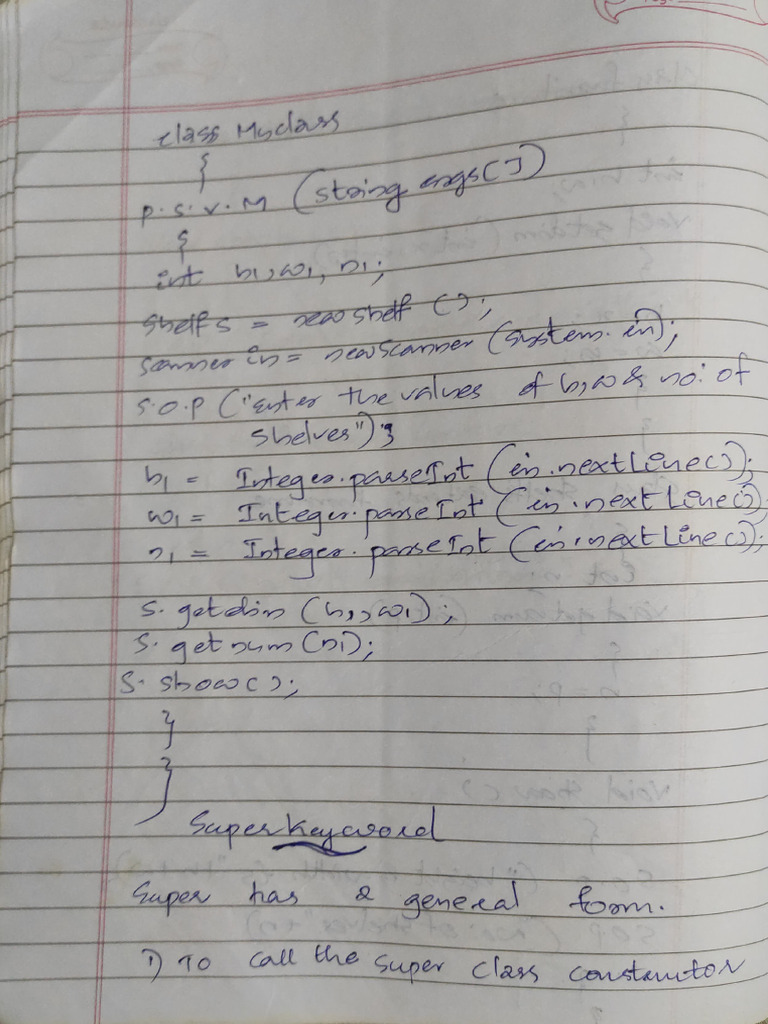 class Myclass
{
p.s.v.M (string args[])
{
int h1, w1, n1;
shelf s = new shelf ();
scanner in = new scanner (system.in);
S.O.P ("enter the values of h, w & no: of
shelves");
h1 = Integer.parseInt (in.nextLine());
w1 = Integer.parseInt (in.nextLine());
n1 = Integer.parseInt (in.nextLine());
s.getdim (h1, w1);
s.getnum (n1);
s.show();
}
}
Super Keyword
Super has 2 general form.
1) To call the super class constructor